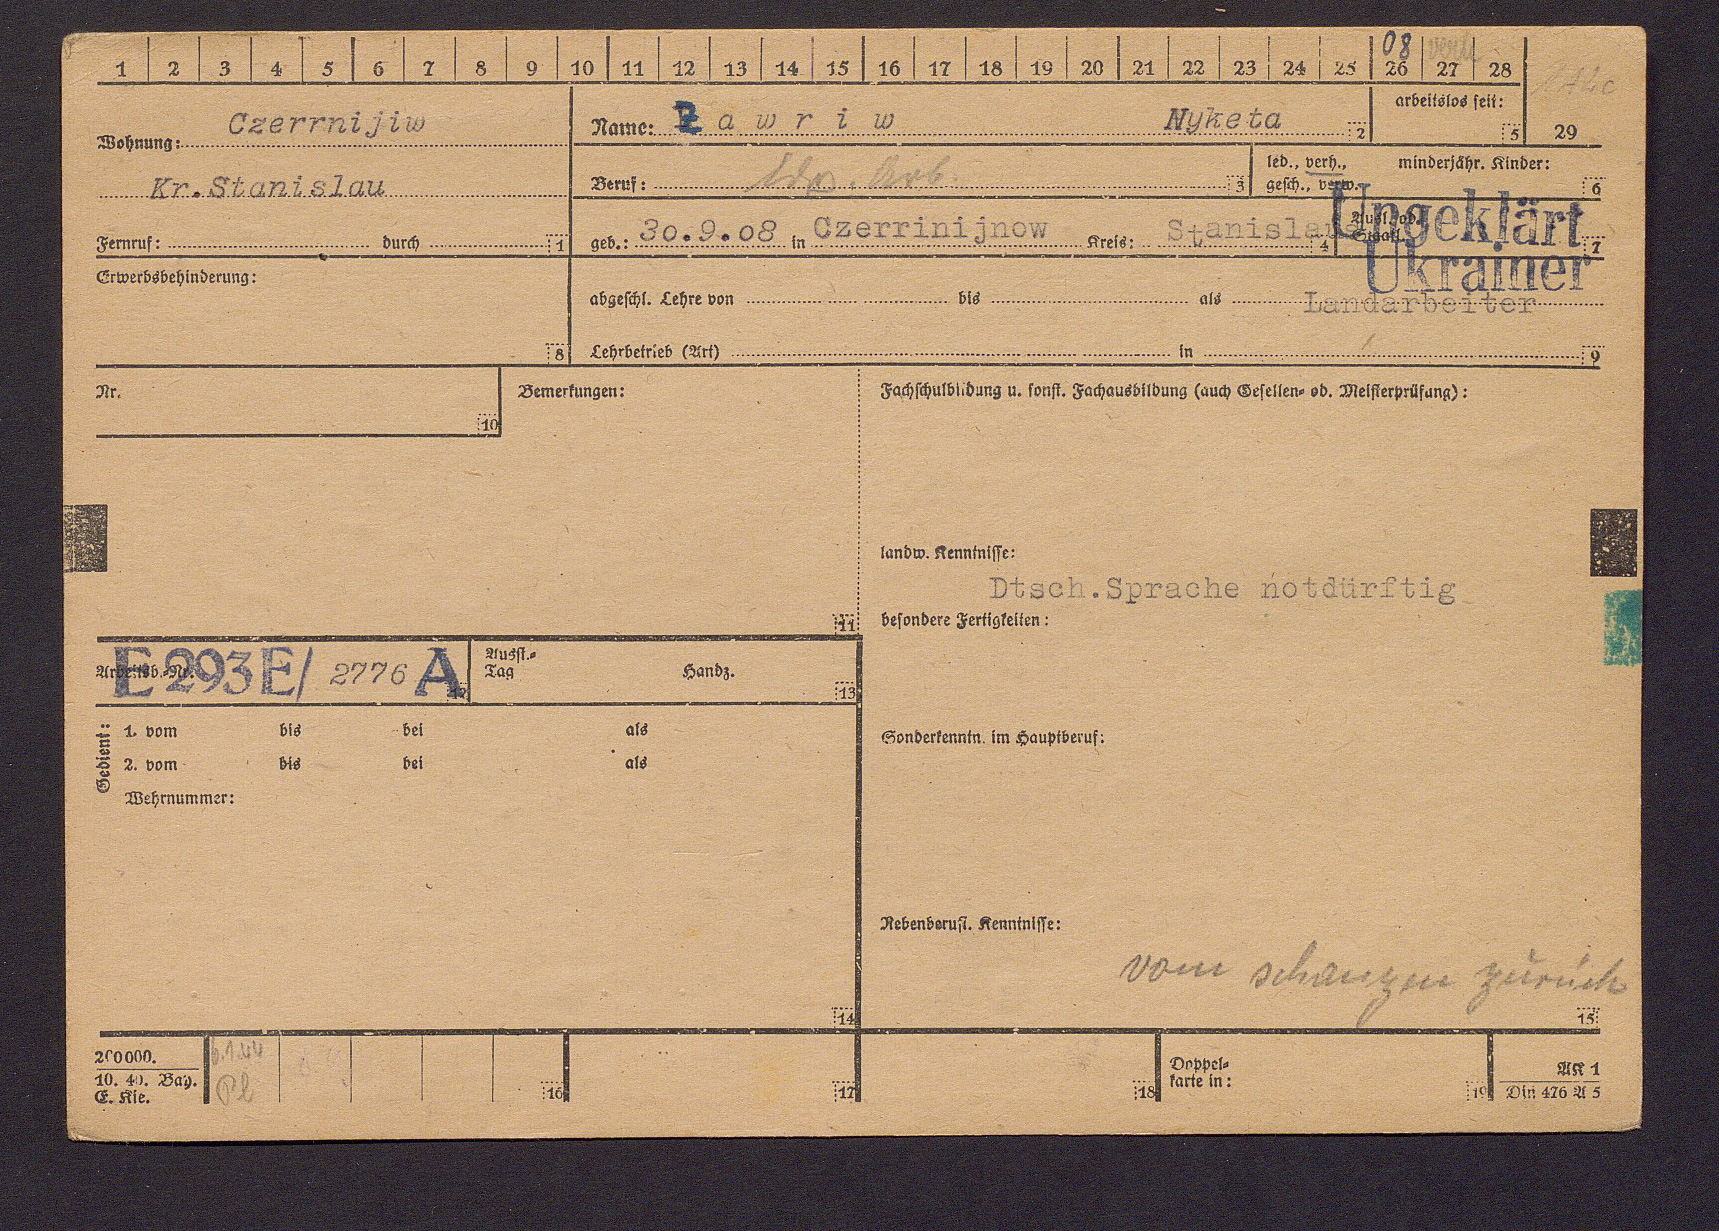 1 2 3 4 5 6 7 8 9 10 11 12 13 14 15 16 17 18 19 20 21 22 23 24 25 26 27 28
08
arbeitslos seit:
5 29
Wohnung: Czerrnijiw
Kr. Stanislau
Fernruf: durch 1
Name: Lawriw Nyketa 2
Beruf: Ldw. Arb. 3
led., verh.,
gesch., verw.
minderjähr. Kinder:
6
geb.: 30.9.08 in Czerrinijnow Kreis: Stanislau 4
Ausl. od.
Staatl.
7
Ungeklärt
Ukrainer
Erwerbsbehinderung:
8
abgeschl. Lehre von bis als Landarbeiter
Lehrbetrieb (Art) in 9
Nr.
10
Bemerkungen:
11
Fachschulbildung u. sonst. Fachausbildung (auch Gesellen- od. Meisterprüfung):
landw. Kenntnisse:
Dtsch. Sprache notdürftig
besondere Fertigkeiten:
Arbeitsb.-Nr. E 293 E/ 2776 A 12
Ausst.-
Tag
Handz.
13
Gedient:
1. vom bis bei als
2. vom bis bei als
Wehrnummer:
14
Sonderkenntn. im Hauptberuf:
Nebenberufl. Kenntnisse:
vom schanzen zurück
15
200000.
10. 40. Bay.
E. Kie.
6.1.44
Pl
16
17
18
Doppel-
karte in:
19
AK 1
Din 476 A 5